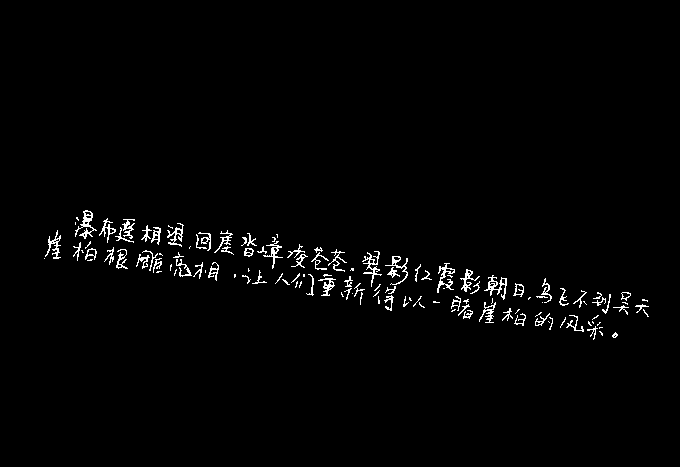 瀑布遥相望,回崖沓嶂凌苍苍。翠影红霞影朝日,鸟飞不到吴天
崖柏根雕亮相,让人们重新得以一睹崖柏的风采。